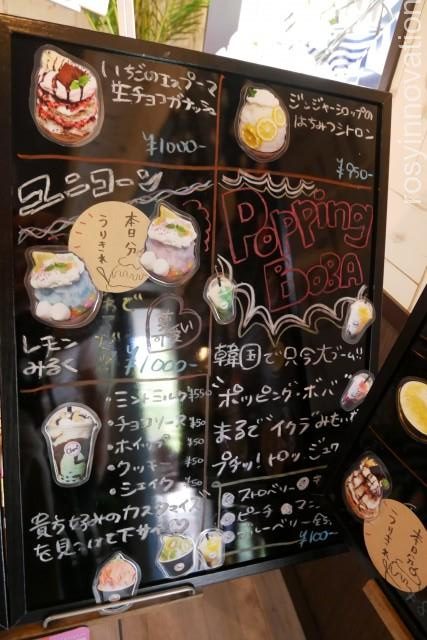 いちごのエスプーマ
生チョコガナッシュ
¥1000-
ジンジャーシロップの
はちみつシトロン
¥950-
ユニコーン
本日分
うりきれ
レモン
みるく
¥1000-
Popping
BOBA
韓国で只今大ブーム!!
ポッピング・ボバ
まるでイクラみたい
プチッ!トロッ、ジュワ
・ミントミルク ¥550
・チョコソース ¥50
・ホイップ ¥50
・クッキー ¥50
・シェイク ¥50
貴方好みのカスタマイズ
を見つけて下サイ
ストロベリー
ピーチ
ブルーベリー
¥100-
rosyinnovation